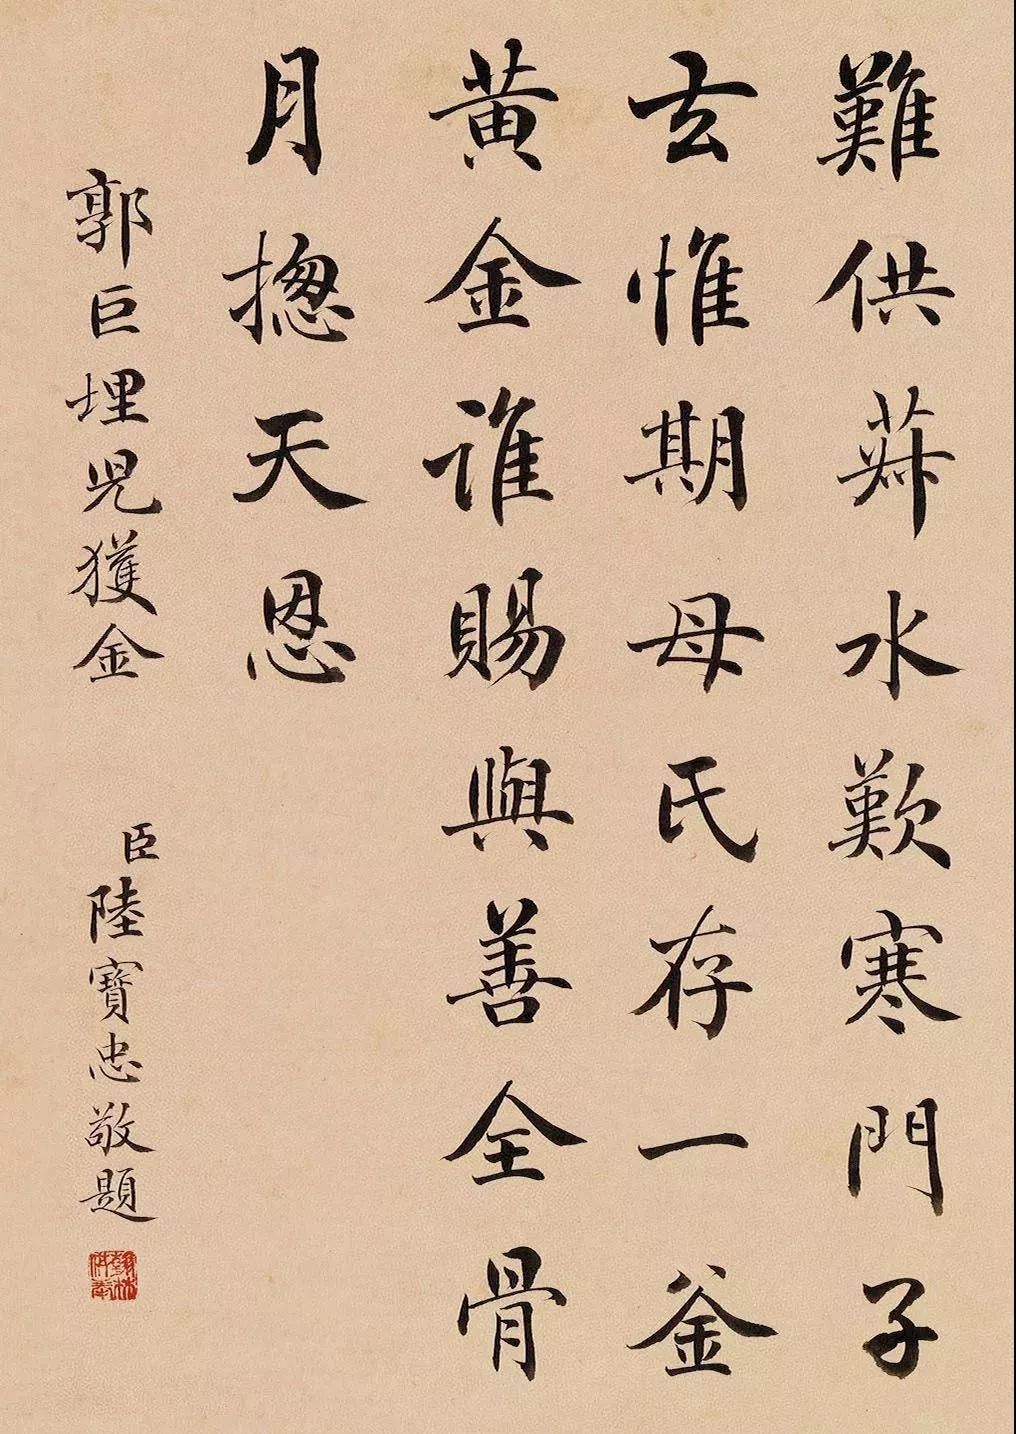 難供菽水歎寒門子
去惟期母氏存一釜
黄金誰賜與善全骨
月揔天恩
郭巨埋兒獲金
臣陸寶忠敬題
翰林供奉